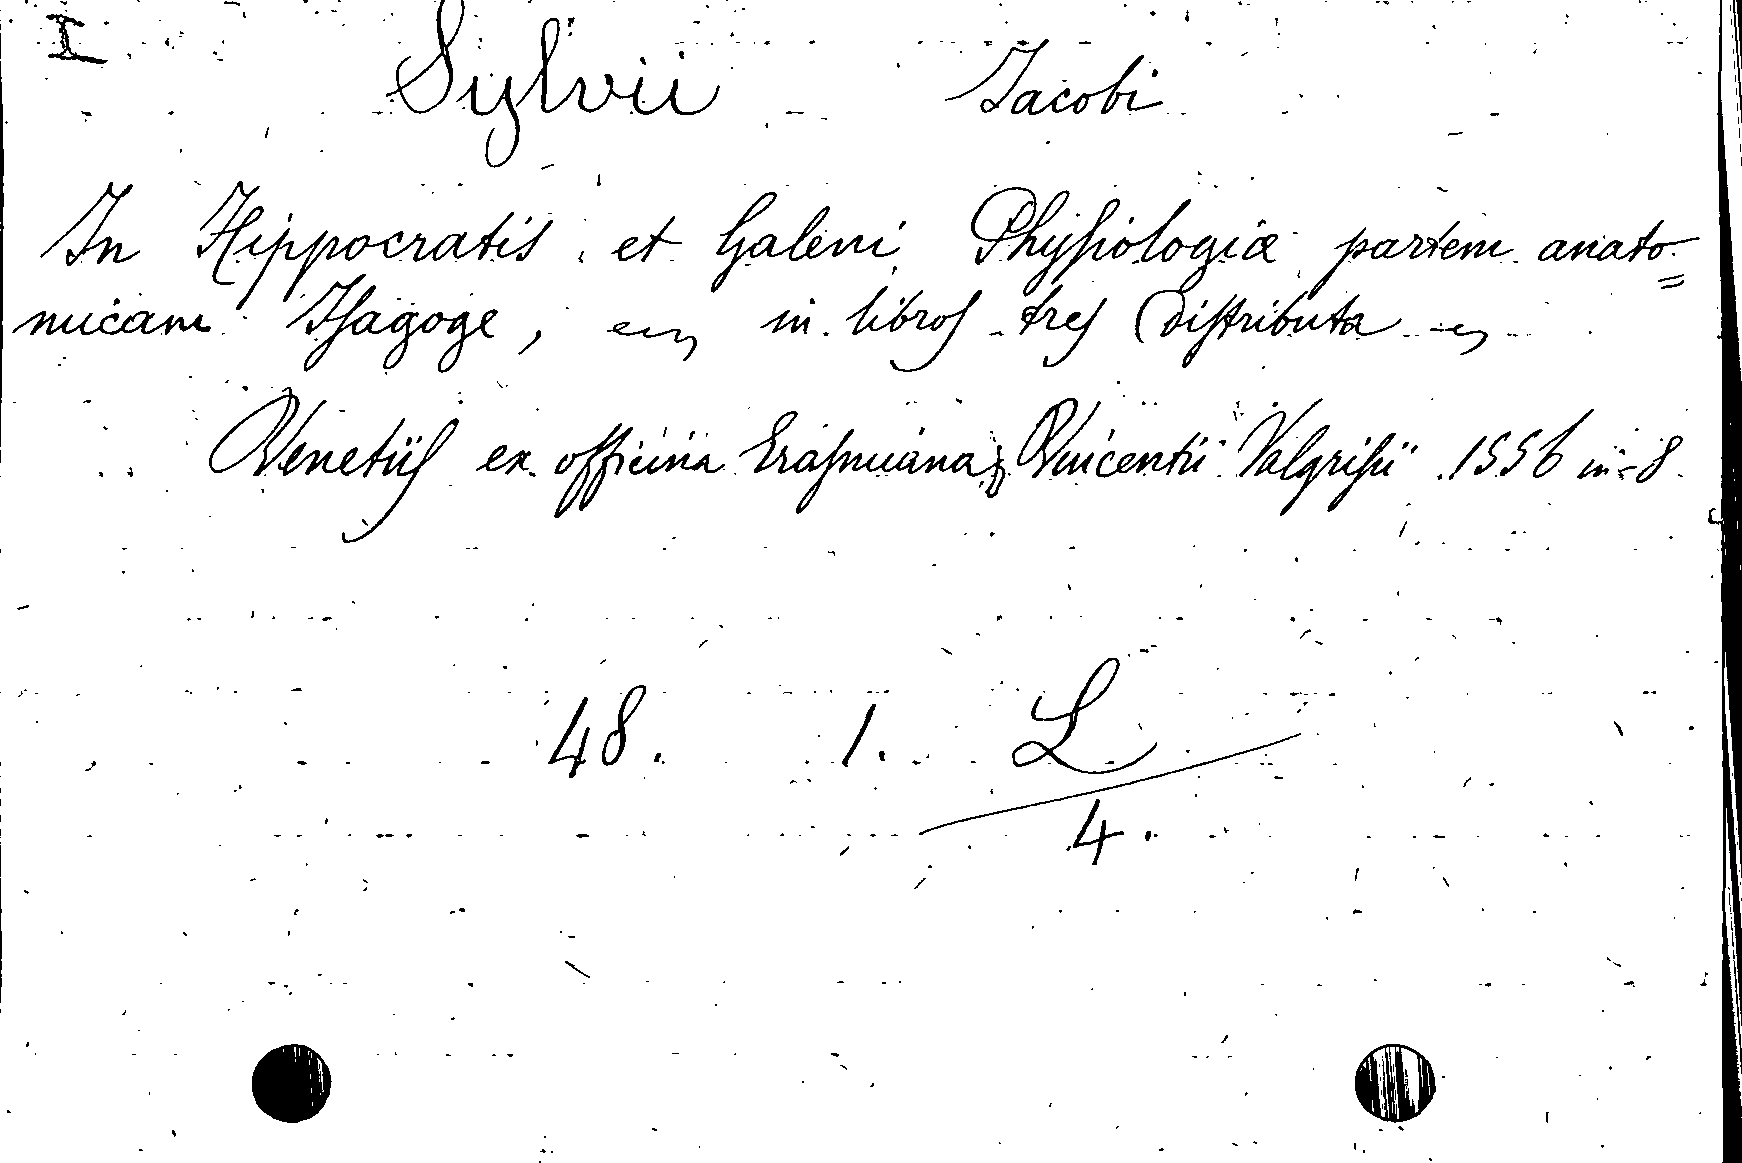 I
Sylvii Jacobi
In Hippocratis et Galeni Phyſiologiæ partem anato=
micam Iſagoge, in libroſ treſ Diſtributa
Venetiiſ ex officina Eraſmiana Vincentii Valgriſii 1556 in-8
48. 1. L
4.